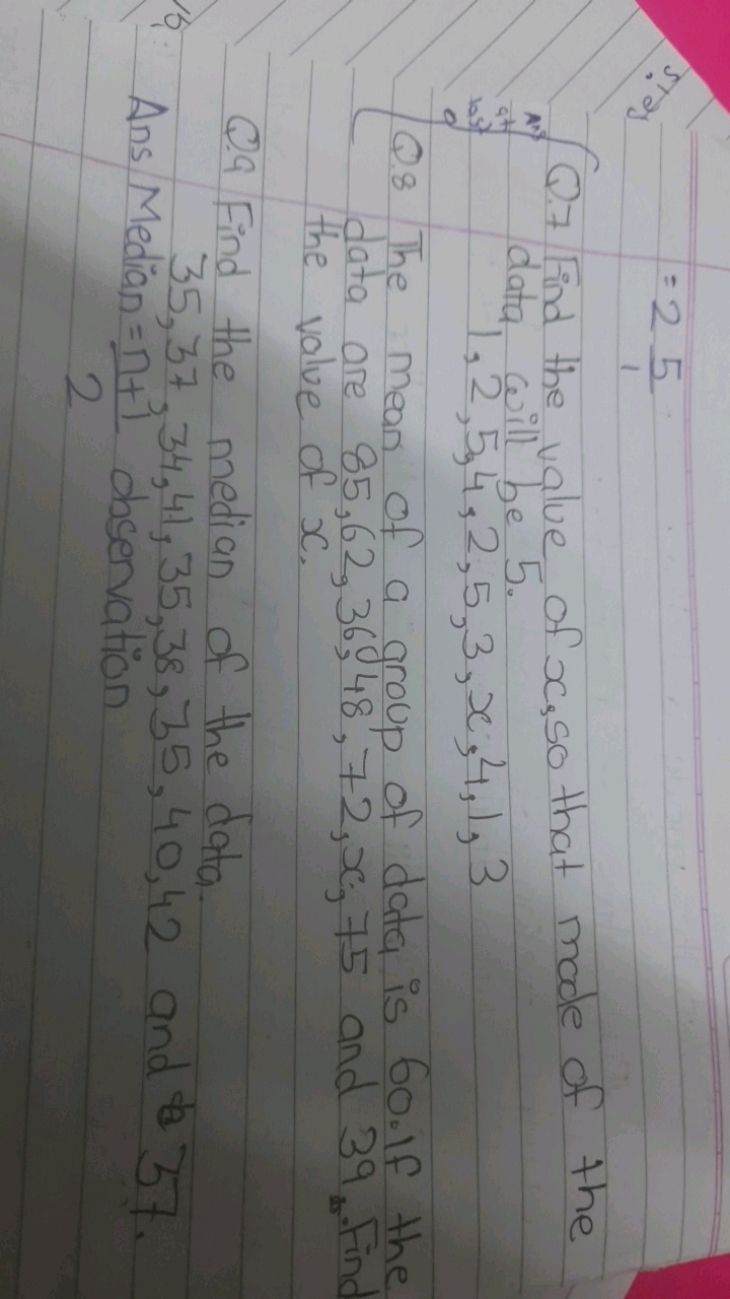 = 2 5
1
Q.7 Find the value of x, so that mode of the
data will be 5.
1, 2, 5, 4, 2, 5, 3, x, 4, 1, 3
Ans
at
last
Q.8 The mean of a group of data is 60. If the
data are 85, 62, 36, 48, 72, x, 75 and 39. Find
the value of x.
Q.9 Find the median of the data.
35, 37, 34, 41, 35, 38, 35, 40, 42 and 37.
Ans Median = n+1 observation
2